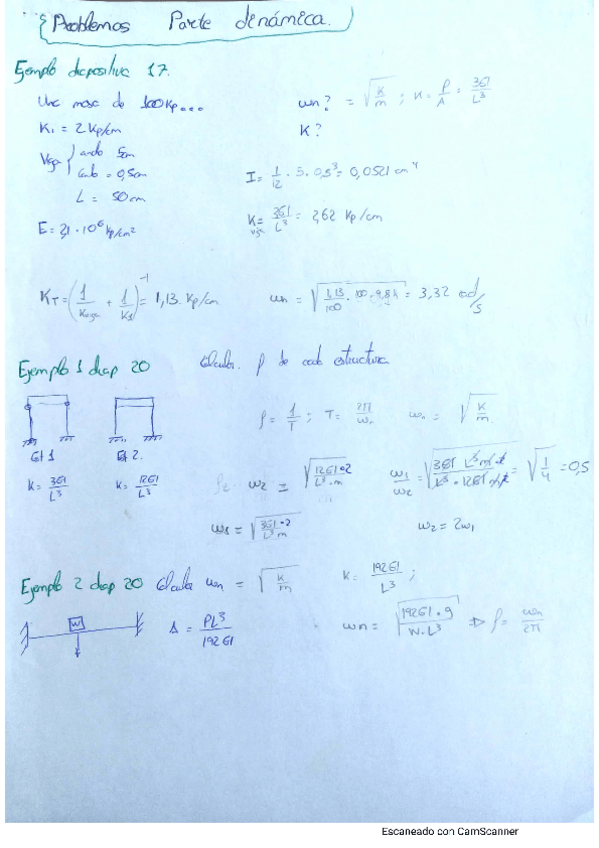 Problemas Parte dinámica.
Ejemplo diapositiva 17.
Una masa de 100Kp... wn? = √(K/m) ; K = P/Δ = 3EI/L³
K₁ = 2 Kp/cm K?
Viga { ancho 5cm
canto = 0,5cm I = 1/12 · 5 · 0,5³ = 0,0521 cm⁴
L = 50cm
E = 2,1 · 10⁶ Kp/cm² K viga = 3EI/L³ = 2,62 Kp/cm
K_T = (1/Kviga + 1/K1)⁻¹ = 1,13 Kp/cm wn = √(1,13/100 · 100 · 9,81) = 3,32 rad/s
Ejemplo 1 diap 20 Calcular f de cada estructura
f = 1/T ; T = 2π/wn wn = √(K/m)
Est 1 Est 2.
K = 3EI/L³ K = 12EI/L³ w2 = √(12EI·2/L³·m) w1/w2 = = √(1/4) = 0,5
w1 = √(3EI·2/L³m) w2 = 2w1
Ejemplo 2 diap 20 Calcula wn = √(K/m) K = 192EI/L³ ;
W Δ = PL³/192EI wn = √(192EI·g/W·L³) ⇒ f = wn/2π
Escaneado con CamScanner